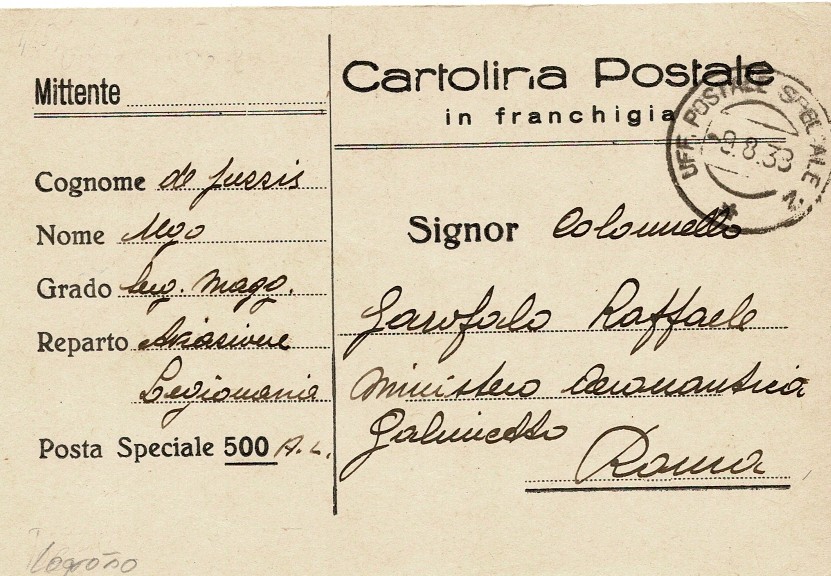 Mittente
Cognome de Jussis
Nome Ugo
Grado Serg. Magg.
Reparto Aviazione
Legionaria
Posta Speciale 500 A. L.
Cartolina Postale
in franchigia
UFF. POSTALE SPECIALE 1
9.8.38
Signor Colonnello
Garofalo Raffaele
Ministero Aeronautica
Gabinetto
Roma
Logroño